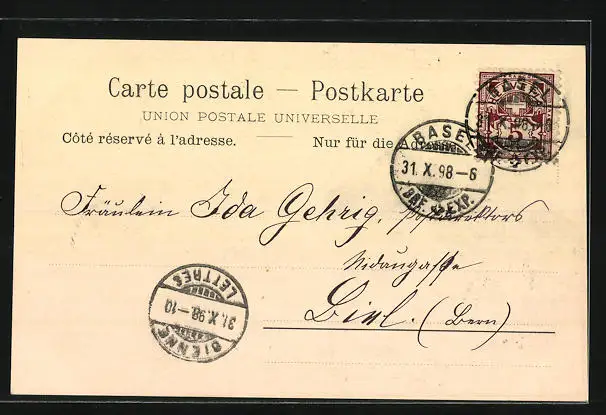 Carte postale — Postkarte
UNION POSTALE UNIVERSELLE
Côté réservé à l'adresse. — Nur für die Adresse
BASEL
31. X. 98 – 6
BRF. EXP.
BASEL
5
Fräulein Ida Gehrig, Postdirektors
Nidaugasse
Biel. (Bern)
BIENNE
31. X. 98 – 10
LETTRES